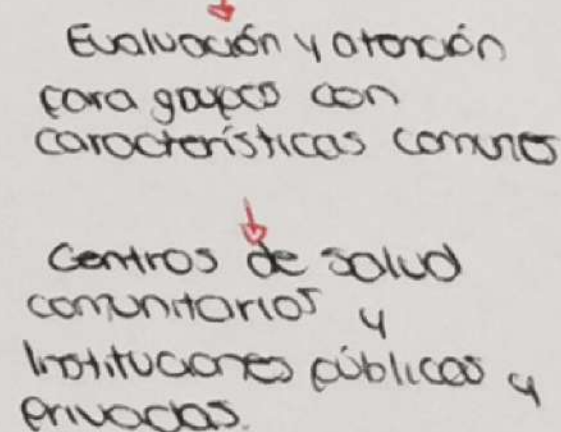 Evaluación y atención
para grupos con
características comunes
Centros de salud
comunitarios y
Instituciones públicas y
privadas.